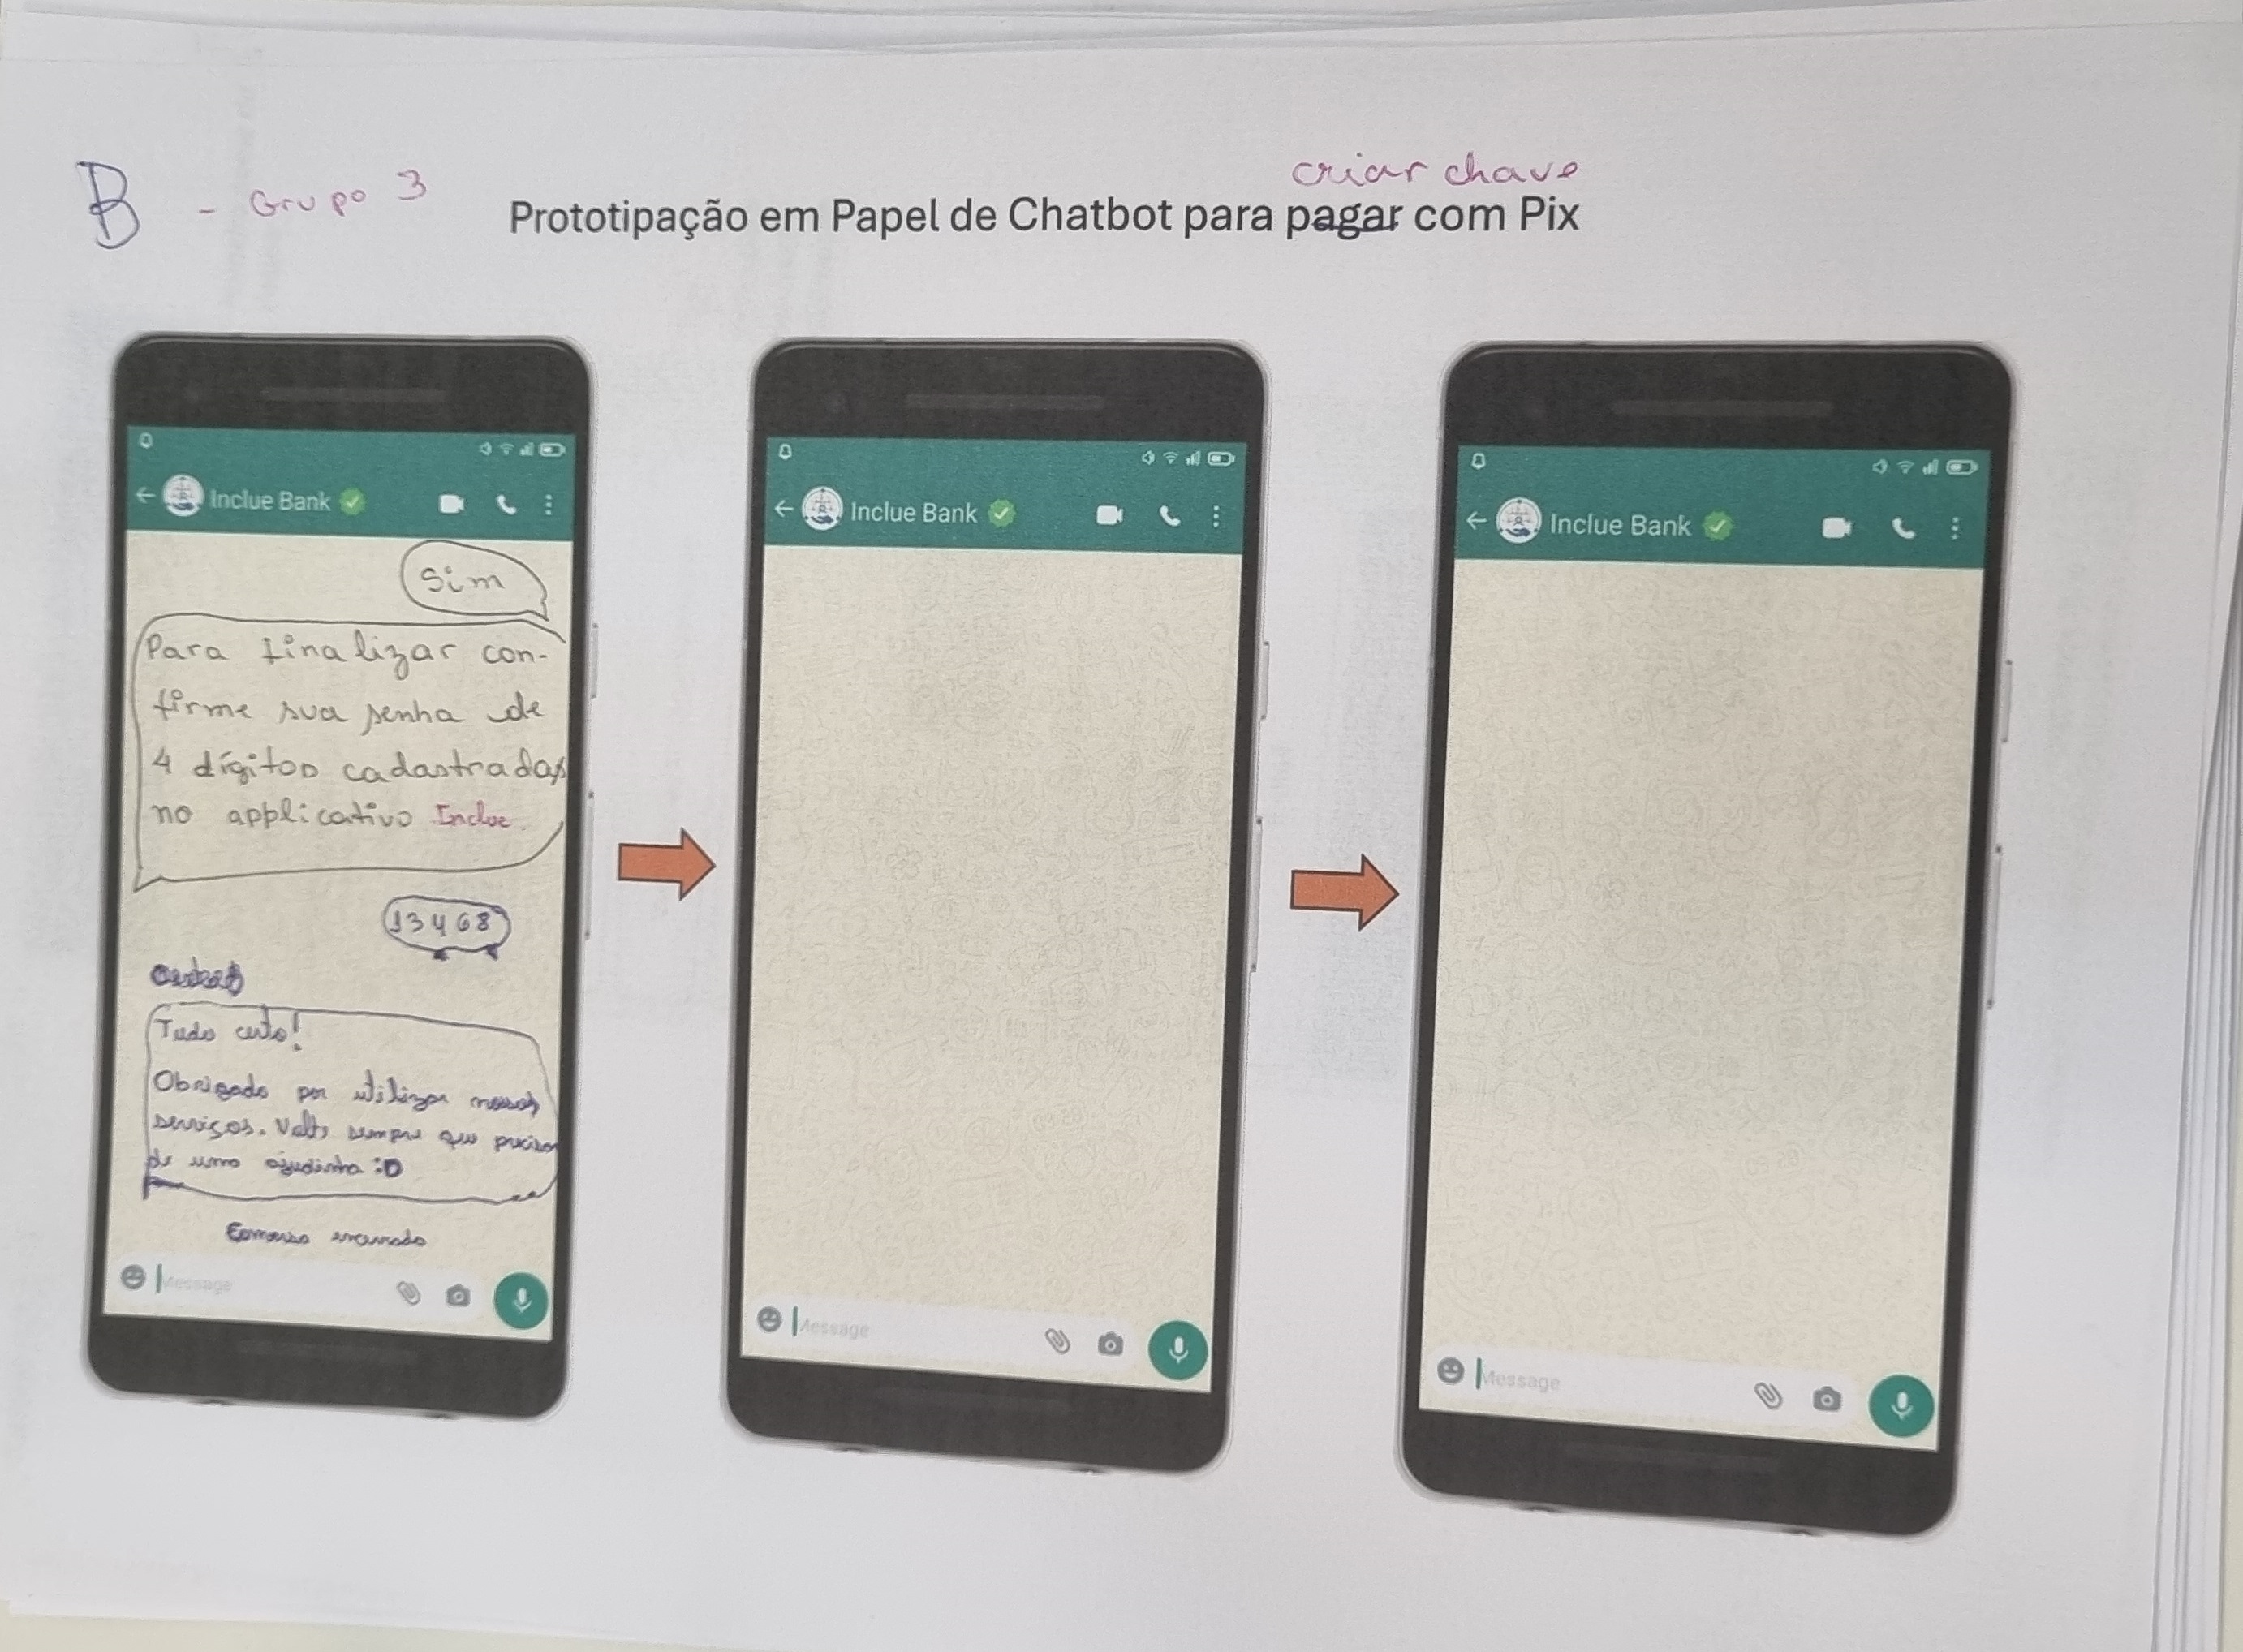 criar chave
B - Grupo 3
Prototipação em Papel de Chatbot para pagar com Pix
Inclue Bank
Sim
Para finalizar con-
firme sua senha de
4 dígitos cadastradas
no applicativo Inclue.
13468
Tudo certo!
Obrigado por utilizar nossos
serviços. Volte sempre que precisar
de uma ajudinha :D
Conversa encerrada
Message
Inclue Bank
Message
Inclue Bank
Message